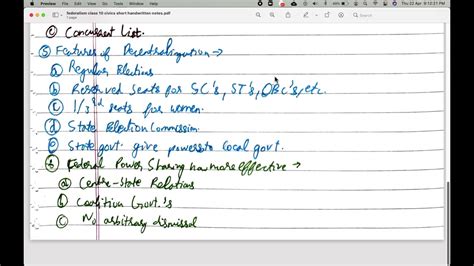 Preview File Edit View Go Tools Window Help
Thu 22 Apr 9:12:21 PM
federalism class 10 civics short handwritten notes.pdf
ⓒ Concurrent List.
⑤ Features of Decentralization →
ⓐ Regular Elections
ⓑ Reserved seats for SC's, ST's, OBC's, etc.
ⓒ 1/3rd seats for women.
ⓓ State Election Commission.
ⓔ State govt. give powers to local govt.
⑥ Federal Power Sharing now more effective →
ⓐ Centre-State Relations
ⓑ Coalition Govt.'s
ⓒ No arbitrary dismissal